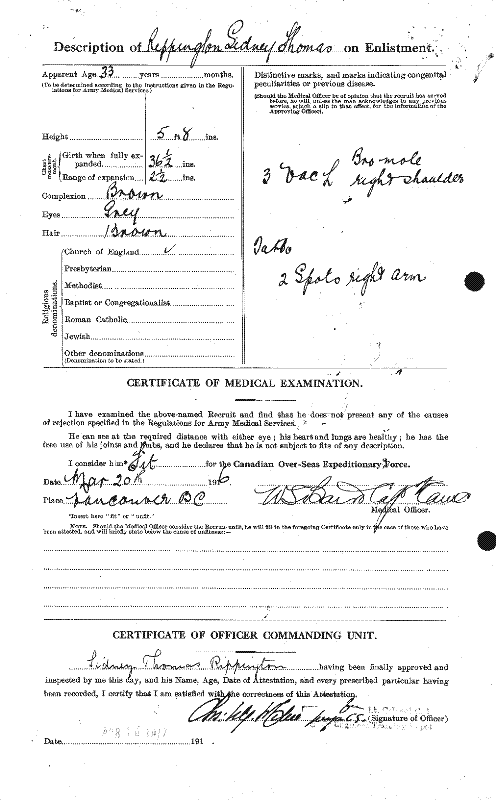 Description of Rippington Sidney Thomas on Enlistment.
Apparent Age 33 years months.
(To be determined according to the instructions given in the Regulations for Army Medical Services.)
Height 5 ft 8 ins.
Chest measurement.
Girth when fully expanded. 36 1/2 ins.
Range of expansion 2 1/2 ins.
Complexion Brown
Eyes Grey
Hair Brown
Religious denominations.
Church of England ✓
Presbyterian
Methodist
Baptist or Congregationalist
Roman Catholic
Jewish
Other denominations
(Denomination to be stated.)
Distinctive marks, and marks indicating congenital
peculiarities or previous disease.
(Should the Medical Officer be of opinion that the recruit has served
before, he will, unless the man acknowledges to any previous
service, attach a slip to that effect, for the information of the
Approving Officer).
3 Vac L Bro mole
right shoulder
Tatto
2 Spots right arm
CERTIFICATE OF MEDICAL EXAMINATION.
I have examined the above-named Recruit and find that he does not present any of the causes
of rejection specified in the Regulations for Army Medical Services.
He can see at the required distance with either eye; his heart and lungs are healthy; he has the
free use of his joints and limbs, and he declares that he is not subject to fits of any description.
I consider him* Fit for the Canadian Over-Seas Expeditionary Force.
Date Mar 20th 1916
Place Vancouver BC
Medical Officer.
*Insert here "fit" or "unfit."
NOTE. Should the Medical Officer consider the Recruit unfit, he will fill in the foregoing Certificate only in the case of those who have
been attested, and will briefly state below the cause of unfitness:—
CERTIFICATE OF OFFICER COMMANDING UNIT.
Sidney Thomas Rippington having been finally approved and
inspected by me this day, and his Name, Age, Date of Attestation, and every prescribed particular having
been recorded, I certify that I am satisfied with the correctness of this Attestation.
(Signature of Officer)
Date 191